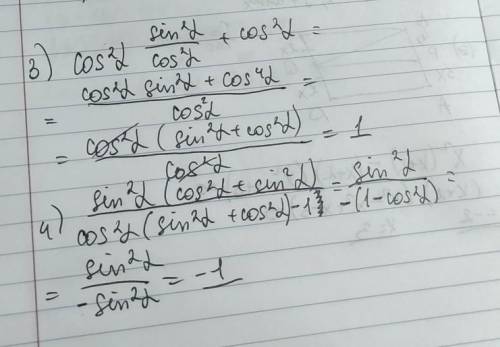 3) cos²α sin²α/cos²α + cos²α =
= (cos²α sin²α + cos⁴α)/cos²α =
= cos²α (sin²α + cos²α)/cos²α = 1
4) sin²α (cos²α + sin²α)/cos²α (sin²α + cos²α) - 1 = sin²α/-(1 - cos²α) =
= sin²α/-sin²α = -1